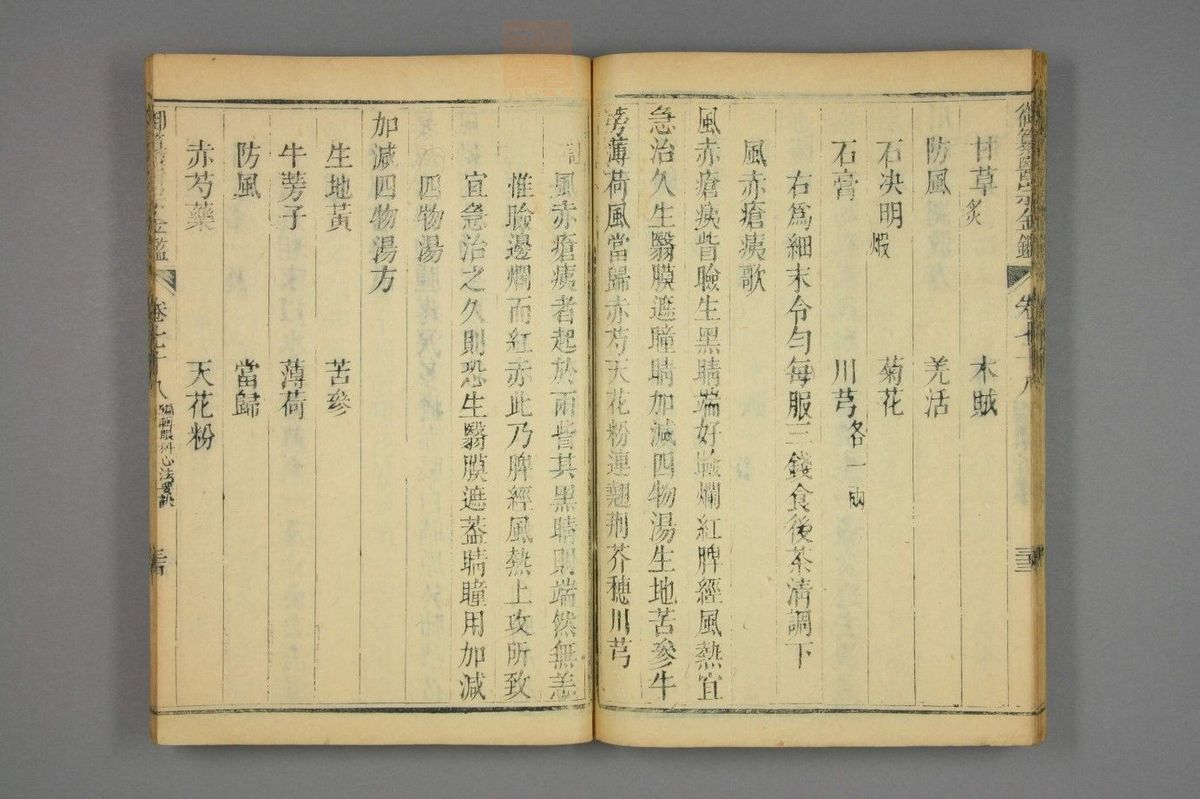 御纂醫宗金鑑 卷七十八 三十三
甘草炙 木賊
防風 羌活
石決明煅 菊花
石膏 川芎各一兩
右爲細末令勻每服三錢食後茶清調下
風赤瘡痍歌
風赤瘡痍眥瞼生黑睛端好瞼爛紅脾經風熱宜
急治久生翳膜遮瞳睛加減四物湯生地苦參牛
蒡薄荷風當歸赤芍天花粉連翹荆芥穗川芎
風赤瘡痍者起於兩眥其黑睛則端然無恙
惟瞼邊爛而紅赤此乃脾經風熱上攻所致
宜急治之久則恐生翳膜遮蓋睛瞳用加減
四物湯
加減四物湯方
生地黃 苦參
牛蒡子 薄荷
防風 當歸
赤芍藥 天花粉
金鑑 卷七十八 編輯眼科心法要訣